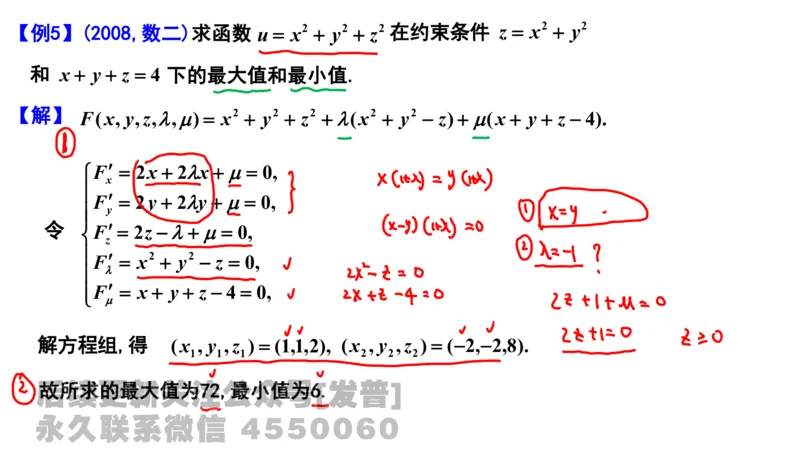 【例5】(2008,数二)求函数 u = x² + y² + z² 在约束条件 z = x² + y²
和 x + y + z = 4 下的最大值和最小值.
【解】 F(x, y, z, λ, μ) = x² + y² + z² + λ(x² + y² − z) + μ(x + y + z − 4).
①
令
F′x = 2x + 2λx + μ = 0,
F′y = 2y + 2λy + μ = 0,
F′z = 2z − λ + μ = 0,
F′λ = x² + y² − z = 0,
F′μ = x + y + z − 4 = 0,
x(1+λ) = y(1+λ)
(x−y)(1+λ) = 0
2x² − z = 0
2x + z − 4 = 0
① x = y
② λ = −1 ?
2z + 1 + μ = 0
2z + 1 = 0 z ≥ 0
解方程组,得 (x₁, y₁, z₁) = (1,1,2), (x₂, y₂, z₂) = (−2,−2,8).
② 故所求的最大值为72,最小值为6.
后续更新关注公众号[发普]
永久联系微信 4550060